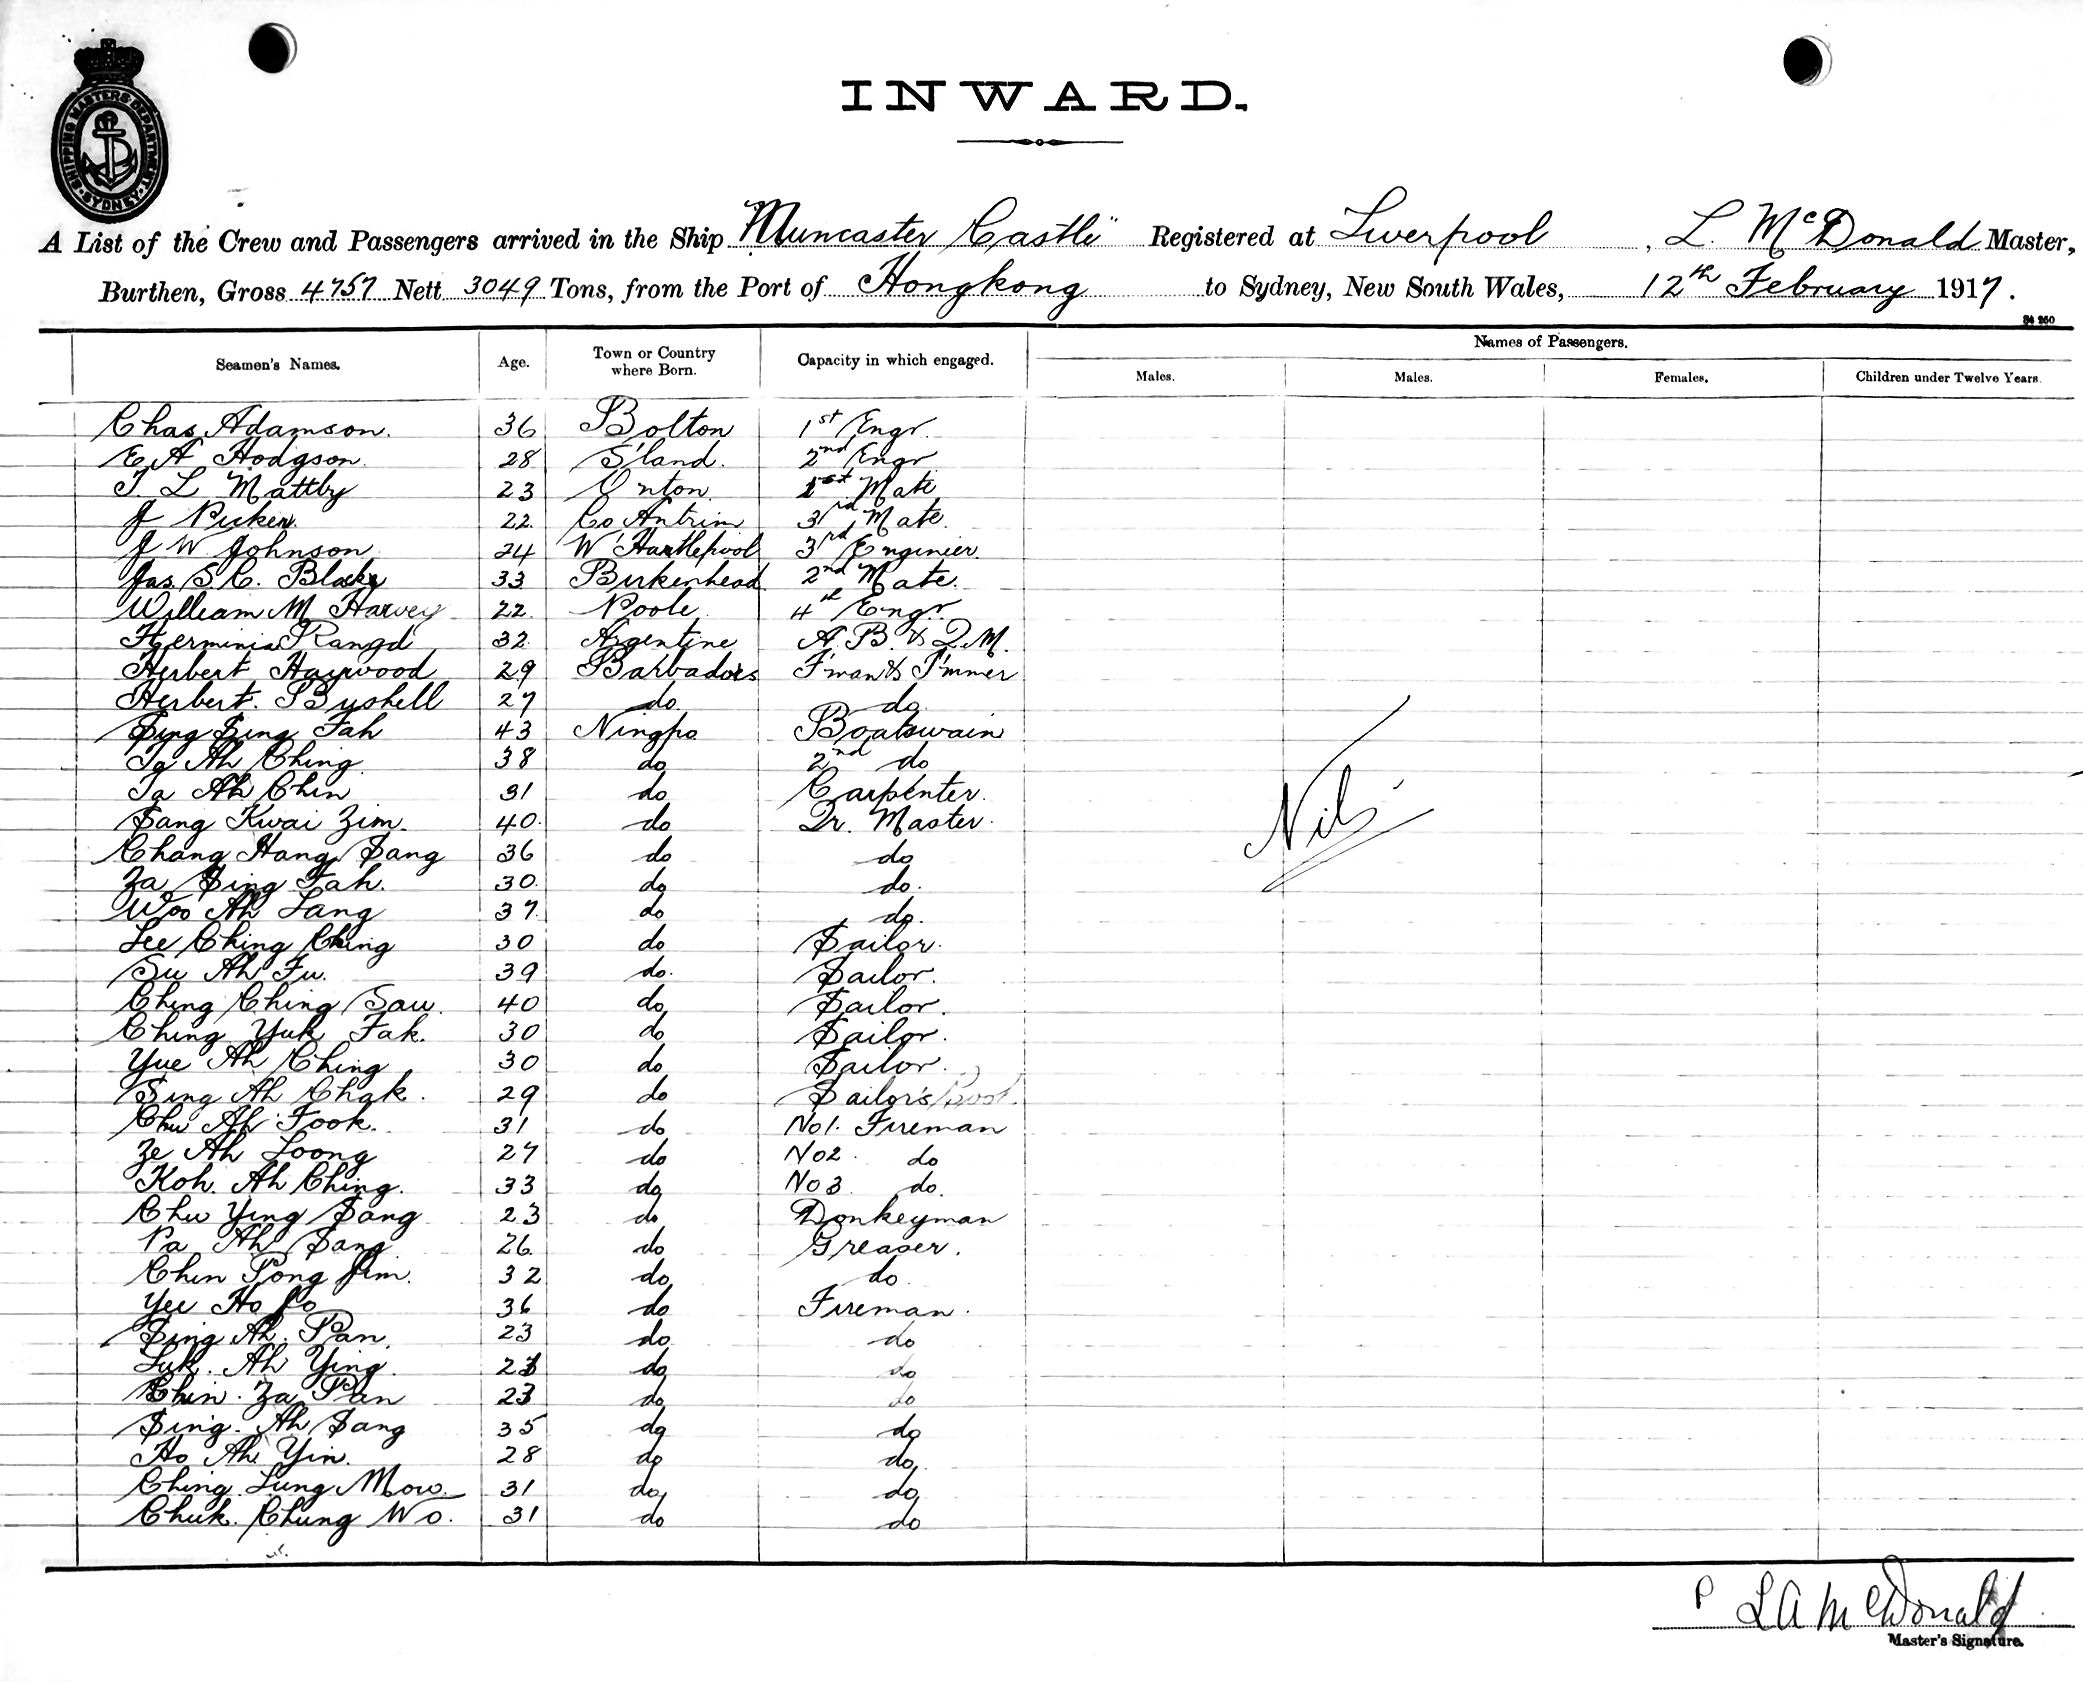 SHIPPING MASTERS DEPARTMENT
SYDNEY
INWARD.
A List of the Crew and Passengers arrived in the Ship "Muncaster Castle" Registered at Liverpool, L. McDonald Master,
Burthen, Gross 4757 Nett 3049 Tons, from the Port of Hongkong to Sydney, New South Wales, 12th February 1917.
Names of Passengers.
Seamen's Names. Age. Town or Country where Born. Capacity in which engaged. Males. Males. Females. Children under Twelve Years.
Chas Adamson. 36 Bolton 1st Engr.
E A Hodgson. 28 S'land. 2nd Engr
T L Mattby 23 1st Mate
J Picken. 22 Co Antrim 3rd Mate.
J W Johnson 24 W Hartlepool 3rd Enginier.
Jas. S. C. 33 Birkenhead 2nd Mate.
William M Harvey 22 Poole. 4th Engr.
32 Argentine A. B. & Q.M.
Herbert Haywood 29 Barbadoes F'man & T'mmer
Herbert. Bushell 27 do. do.
Sing Fah 43 Ningpo Boatswain
Ah Ching 38 do 2nd do
Ah Chin 31 do Carpenter.
Sang Kwai Zim. 40. do Qr. Master.
Chang Hang Sang 36 do do
Za Sing Fah. 30. do do.
Woo Ah Lang 37. do do.
Lee Ching Ching 30 do Sailor.
Su Ah Fu. 39 do. Sailor.
Ching Ching Sau. 40 do Sailor.
Ching Yuk Fak. 30 do Sailor.
Yue Ah Ching 30 do Sailor.
Sing Ah Chak. 29 do Sailor's Cook.
Chu Ah Fook. 31 do No1. Fireman
Ze Ah Loong 27 do No2. do
Koh. Ah Ching. 33 do No3. do.
Chu Ying Sang 23 do Donkeyman
Pa Ah Sang. 26. do Greaser.
Chin Pong Jim. 32 do do.
Yee Ho 36 do Fireman.
Sing Ah. Pan. 23 do. do
Luk. Ah Ying. do do
Chin. Za Pan 23 do do
Sing. Ah Sang 35 do do
Ho Ah Yin. 28 do do.
Ching Lung Mow. 31 do. do
Chuk. Chung Wo. 31 do do
Nil
P L A McDonald
Master's Signature.